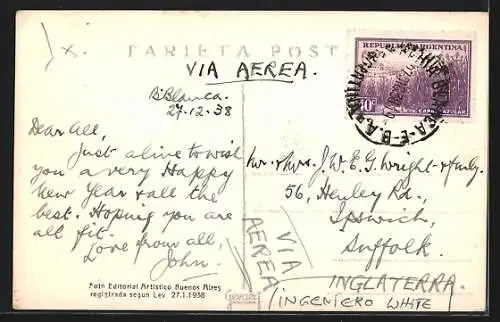 TARJETA POSTAL
VIA AEREA.
REPUBLICA ARGENTINA
40c
CAÑA DE AZUCAR
B. Blanca.
27-12-38
Dear All,
Just alive to wish
you a very Happy
New Year & all the
best. Hoping you are
all fit.
Love from all,
John.
Mr. & Mrs. J. W. E. G. Wright & family.
56, Henley Rd.,
Ipswich,
Suffolk.
INGLATERRA.
VIA
AEREA
(INGENIERO WHITE
Foto Editorial Artistico Buenos Aires
registrada segun Ley 27.1.1938
Gevaert